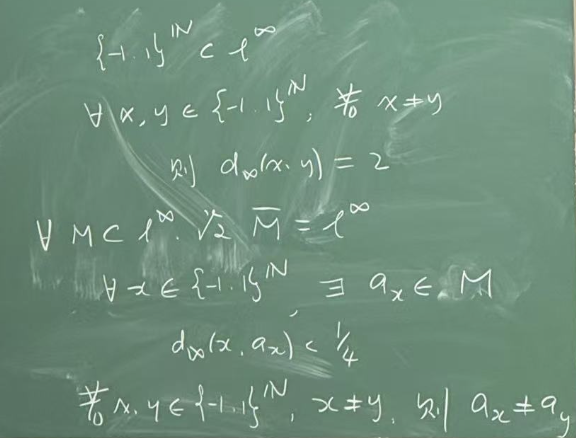 {-1.1}^ℕ ⊂ ℓ^∞
∀ x, y ∈ {-1.1}^ℕ, 若 x ≠ y
则 d_∞(x, y) = 2
∀ M ⊂ ℓ^∞. 设 M̅ = ℓ^∞
∀ x ∈ {-1.1}^ℕ, ∃ a_x ∈ M
d_∞(x, a_x) < 1/4
若 x, y ∈ {-1.1}^ℕ, x ≠ y, 则 a_x ≠ a_y